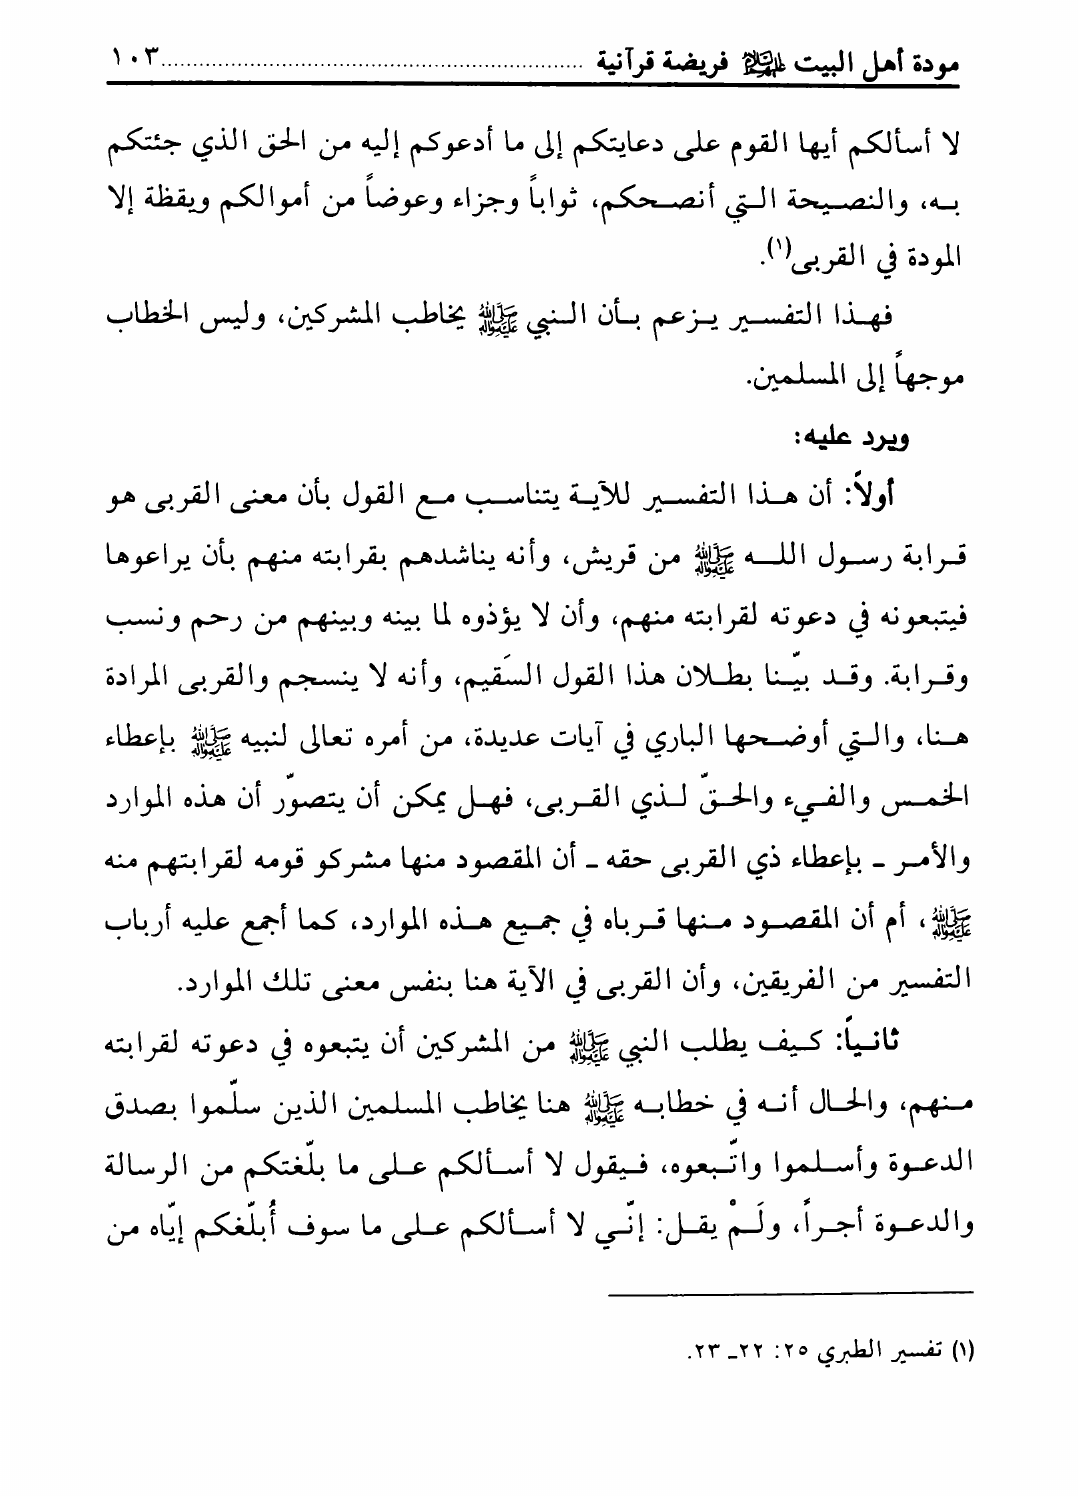 مودة أهل البيت عليهم السلام فريضة قرآنية ........................................................ ١٠٣
لا أسألكم أيها القوم على دعايتكم إلى ما أدعوكم إليه من الحق الذي جئتكم
به، والنصيحة التي أنصحكم، ثواباً وجزاء وعوضاً من أموالكم ويقظة إلا
المودة في القربى(١).
فهذا التفسير يزعم بأن النبي ﷺ يخاطب المشركين، وليس الخطاب
موجهاً إلى المسلمين.
ويرد عليه:
أولاً: أن هذا التفسير للآية يتناسب مع القول بأن معنى القربى هو
قرابة رسول الله ﷺ من قريش، وأنه يناشدهم بقرابته منهم بأن يراعوها
فيتبعونه في دعوته لقرابته منهم، وأن لا يؤذوه لما بينه وبينهم من رحم ونسب
وقرابة. وقد بيّنا بطلان هذا القول السَقيم، وأنه لا ينسجم والقربى المرادة
هنا، والتي أوضحها الباري في آيات عديدة، من أمره تعالى لنبيه ﷺ بإعطاء
الخمس والفيء والحقّ لذي القربى، فهل يمكن أن يتصوّر أن هذه الموارد
والأمر ـ بإعطاء ذي القربى حقه ـ أن المقصود منها مشركو قومه لقرابتهم منه
ﷺ، أم أن المقصود منها قرباه في جميع هذه الموارد، كما أجمع عليه أرباب
التفسير من الفريقين، وأن القربى في الآية هنا بنفس معنى تلك الموارد.
ثانياً: كيف يطلب النبي ﷺ من المشركين أن يتبعوه في دعوته لقرابته
منهم، والحال أنه في خطابه ﷺ هنا يخاطب المسلمين الذين سلّموا بصدق
الدعوة وأسلموا واتّبعوه، فيقول لا أسألكم على ما بلّغتكم من الرسالة
والدعوة أجراً، ولَمْ يقل: إنّي لا أسألكم على ما سوف أُبلّغكم إيّاه من
(١) تفسير الطبري ٢٥: ٢٢ـ ٢٣.